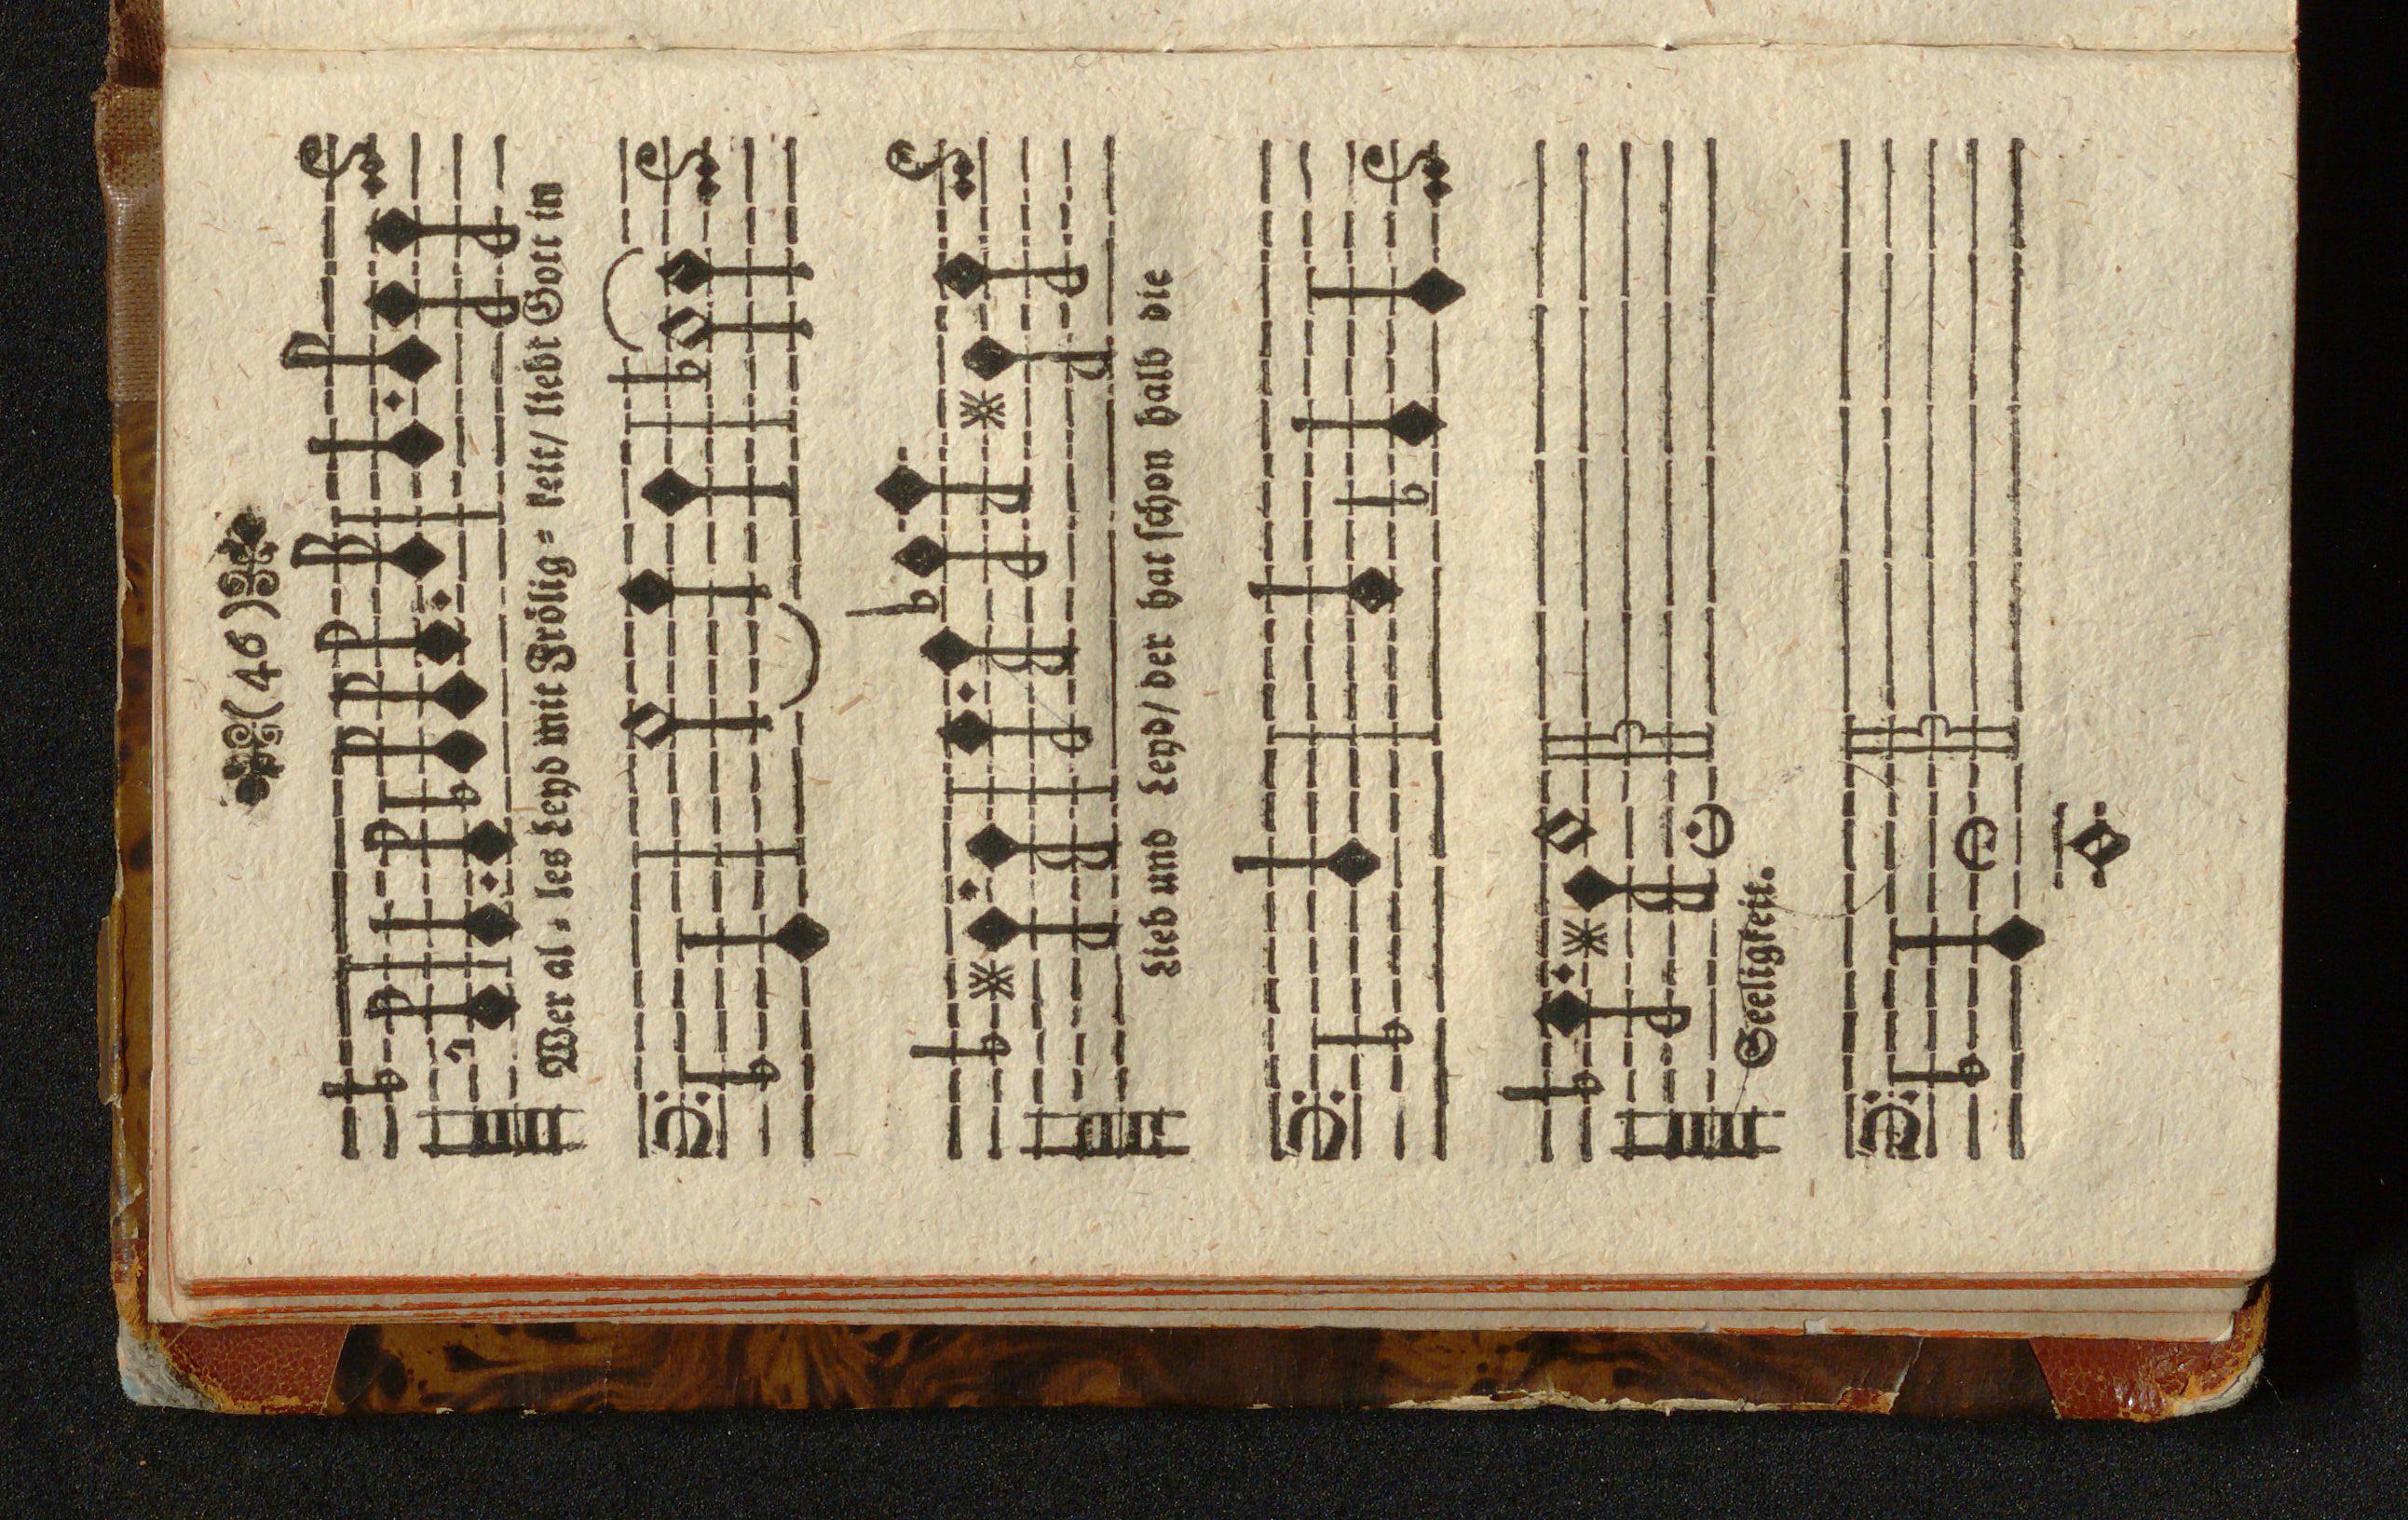 (46)
Wer al= les Leyd mit Frölig= keit/ liebt Gott in
Lieb und Leyd/ der hat schon halb die
Seeligkeit.